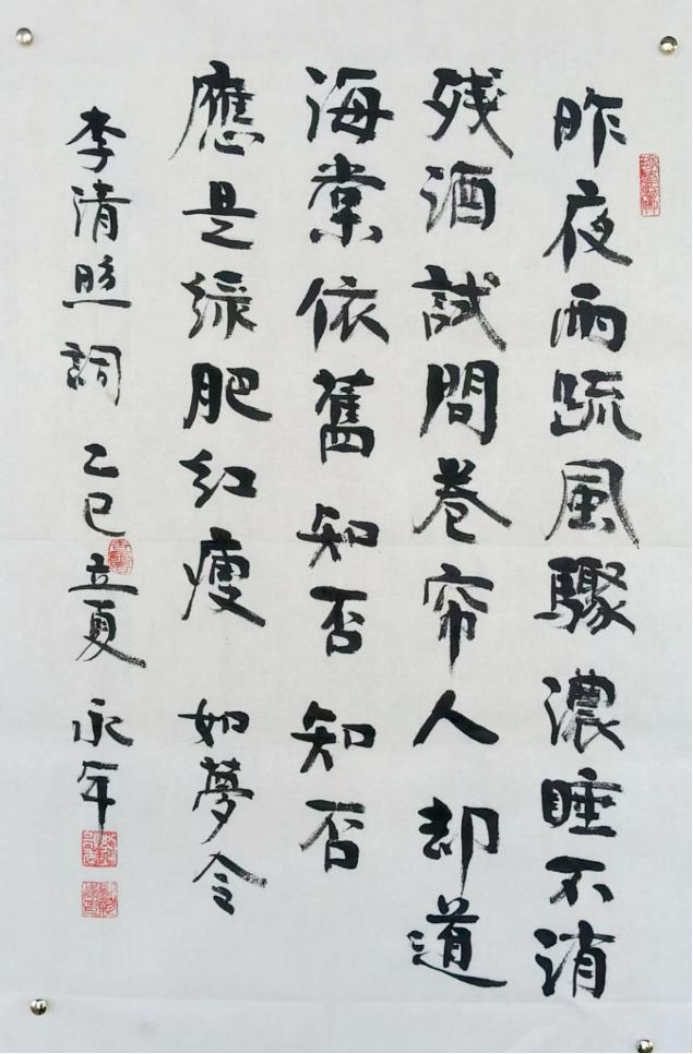 昨夜雨疏風驟濃睡不消
残酒試問卷帘人却道
海棠依舊知否知否
應是绿肥红瘦 如夢令
李清照詞 乙巳立夏 永年